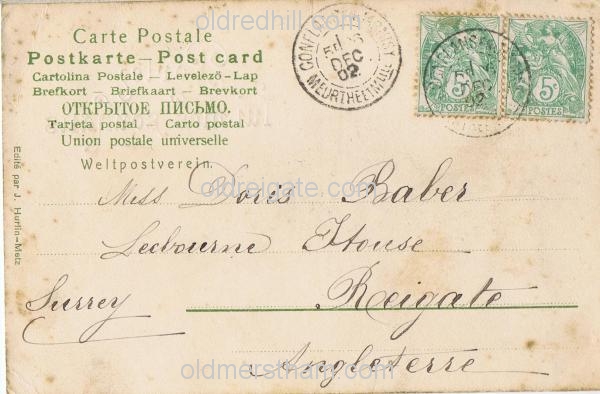 oldredhill.com
Carte Postale
Postkarte—Post card
Cartolina Postale — Levelező-Lap
Brefkort — Briefkaart — Brevkort
ОТКРЫТОЕ ПИСЬМО.
Tarjeta postal — Carto postal
Union postale universelle
Weltpostverein.
DEC
02
MEURTHE ET M
5c
POSTES
5c
POSTES
oldreigate.com
Miss Doris Baber
Ledbourne House
Surrey
Reigate
Angleterre
oldmerstham.com
Edité par J. Hurlin-Metz